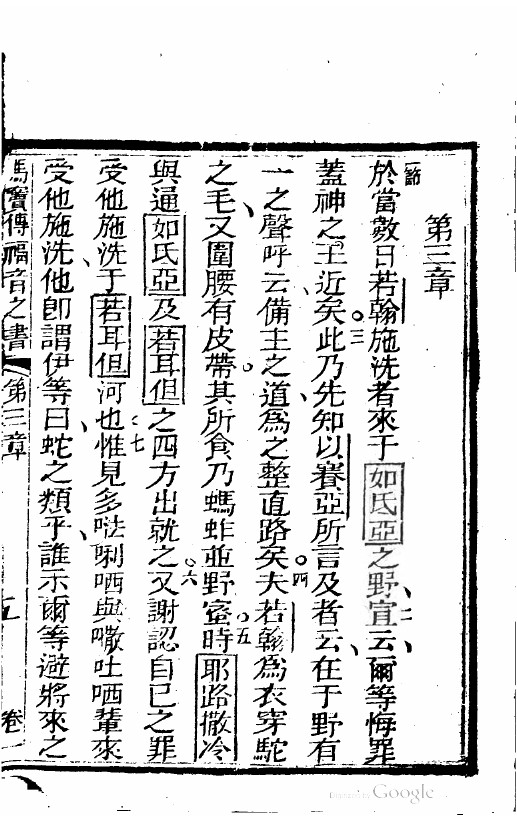 第三章
一節
於當數日若翰施洗者來于如氏亞之野、二宣、云爾等悔罪
蓋神之王近矣。三此乃先知以賽亞所言及者云、在于野有
一之聲呼云備主之道、為之整直路矣。四夫若翰為衣穿駝
之毛、又圍腰有皮帶。其所食乃螞蚱並野蜜。五時耶路撒冷
與通如氏亞及若耳但之四方出就之。六又謝認自己之罪
受他施洗、于若耳但河也。七惟見多𠵽唎哂與𠿒吐哂輩來
受他施洗他卽謂伊等曰、蛇之類乎、誰示爾等避將來之
馬寶傳福音之書
第三章
五
卷一
Digitized by Google